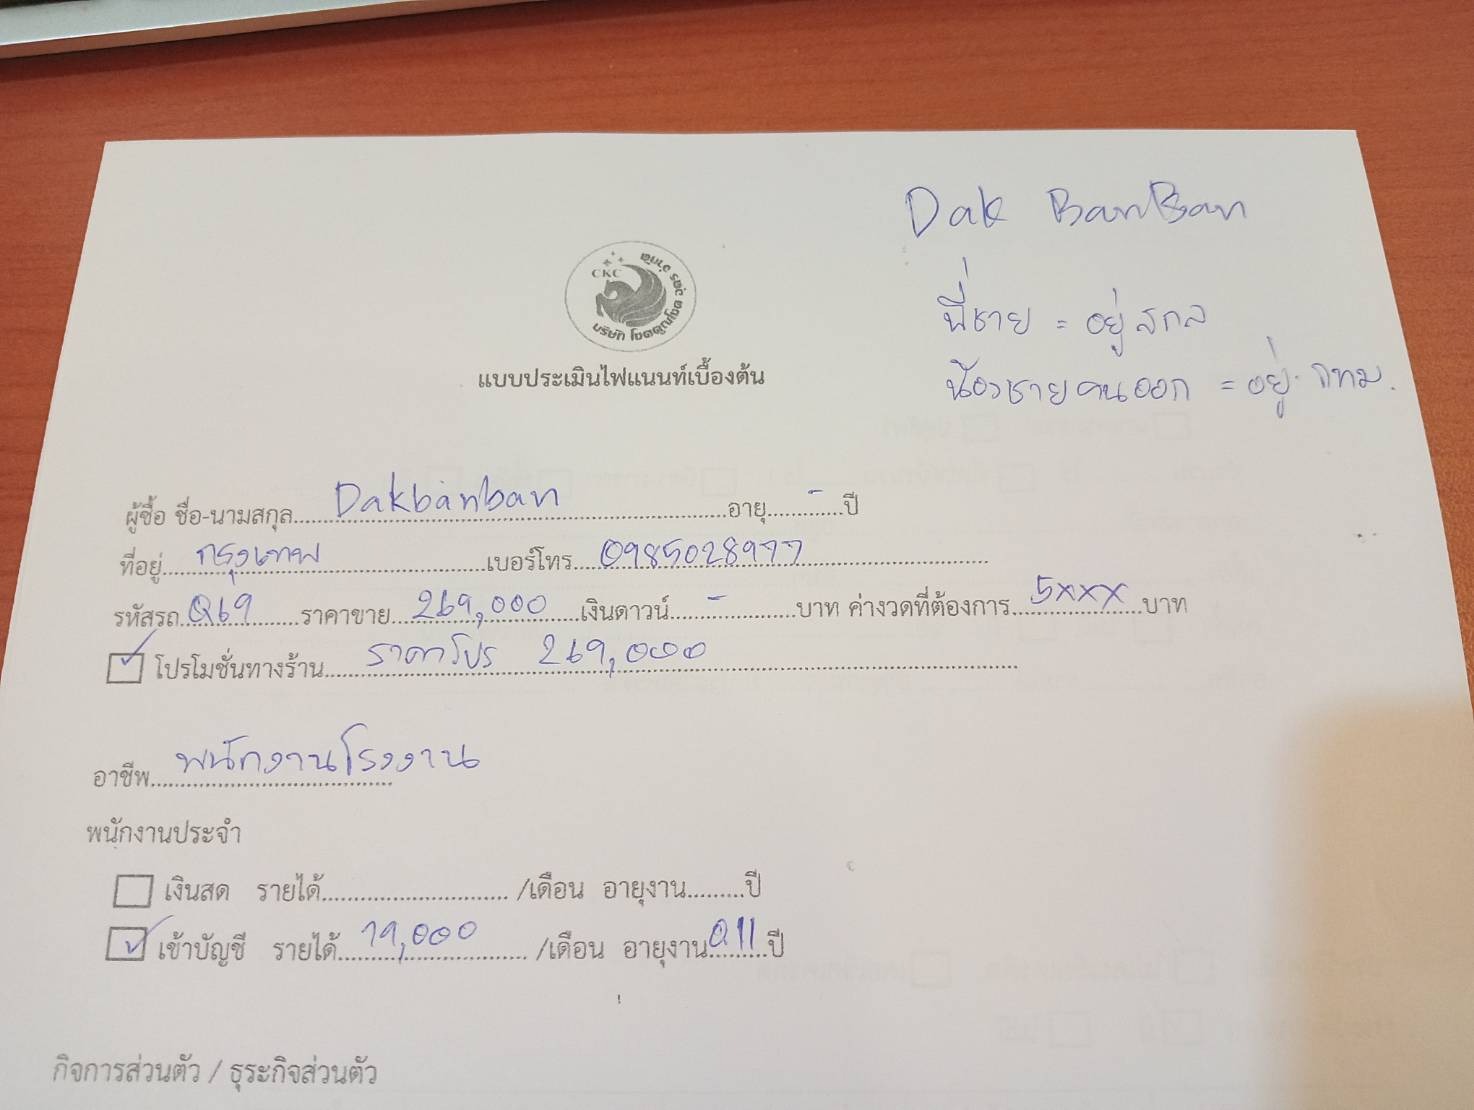 Dak BanBan
พี่ชาย = อยู่สกล
น้องชายคนออก = อยู่ กทม.
CKC
บริษัท โชคคูณโชค คาร์ จำกัด
แบบประเมินไฟแนนท์เบื้องต้น
ผู้ซื้อ ชื่อ-นามสกุล Dakbanban อายุ - ปี
ที่อยู่ กรุงเทพ เบอร์โทร 0985028977
รหัสรถ Q69 ราคาขาย 269,000 เงินดาวน์ - บาท ค่างวดที่ต้องการ 5xxx บาท
โปรโมชั่นทางร้าน ราคาโปร 269,000
อาชีพ พนักงานโรงงาน
พนักงานประจำ
เงินสด รายได้ /เดือน อายุงาน ปี
เข้าบัญชี รายได้ 19,000 /เดือน อายุงาน 0.11 ปี
กิจการส่วนตัว / ธุระกิจส่วนตัว